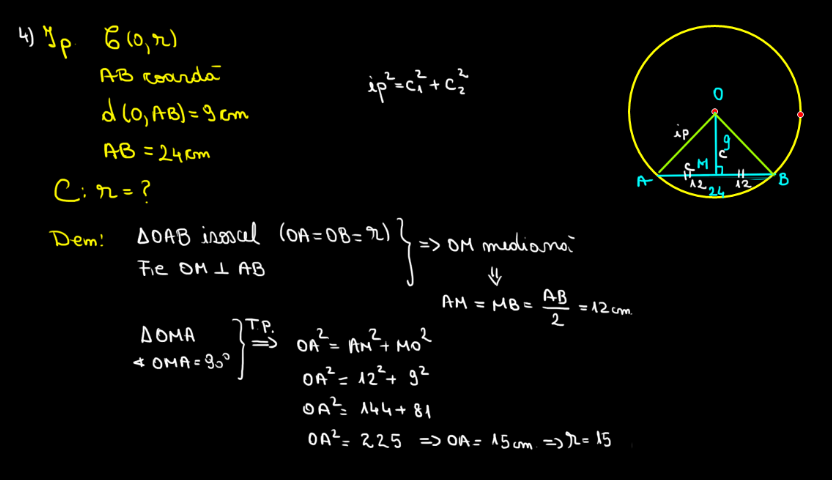 4) Ip. C(O,r)
AB coardă
d(O,AB)=9cm
AB = 24cm
C: r = ?
ip²=c₁²+c₂²
O
ip
9
c
M
c
A
12
12
B
24
Dem: ΔOAB isoscel (OA=OB=r)
Fie OM ⊥ AB
=> OM mediană
⇓
AM = MB = AB/2 = 12cm
ΔOMA
∢ OMA=90°
T.P. =>
OA² = AM² + MO²
OA² = 12² + 9²
OA² = 144 + 81
OA² = 225 => OA = 15cm => r = 15